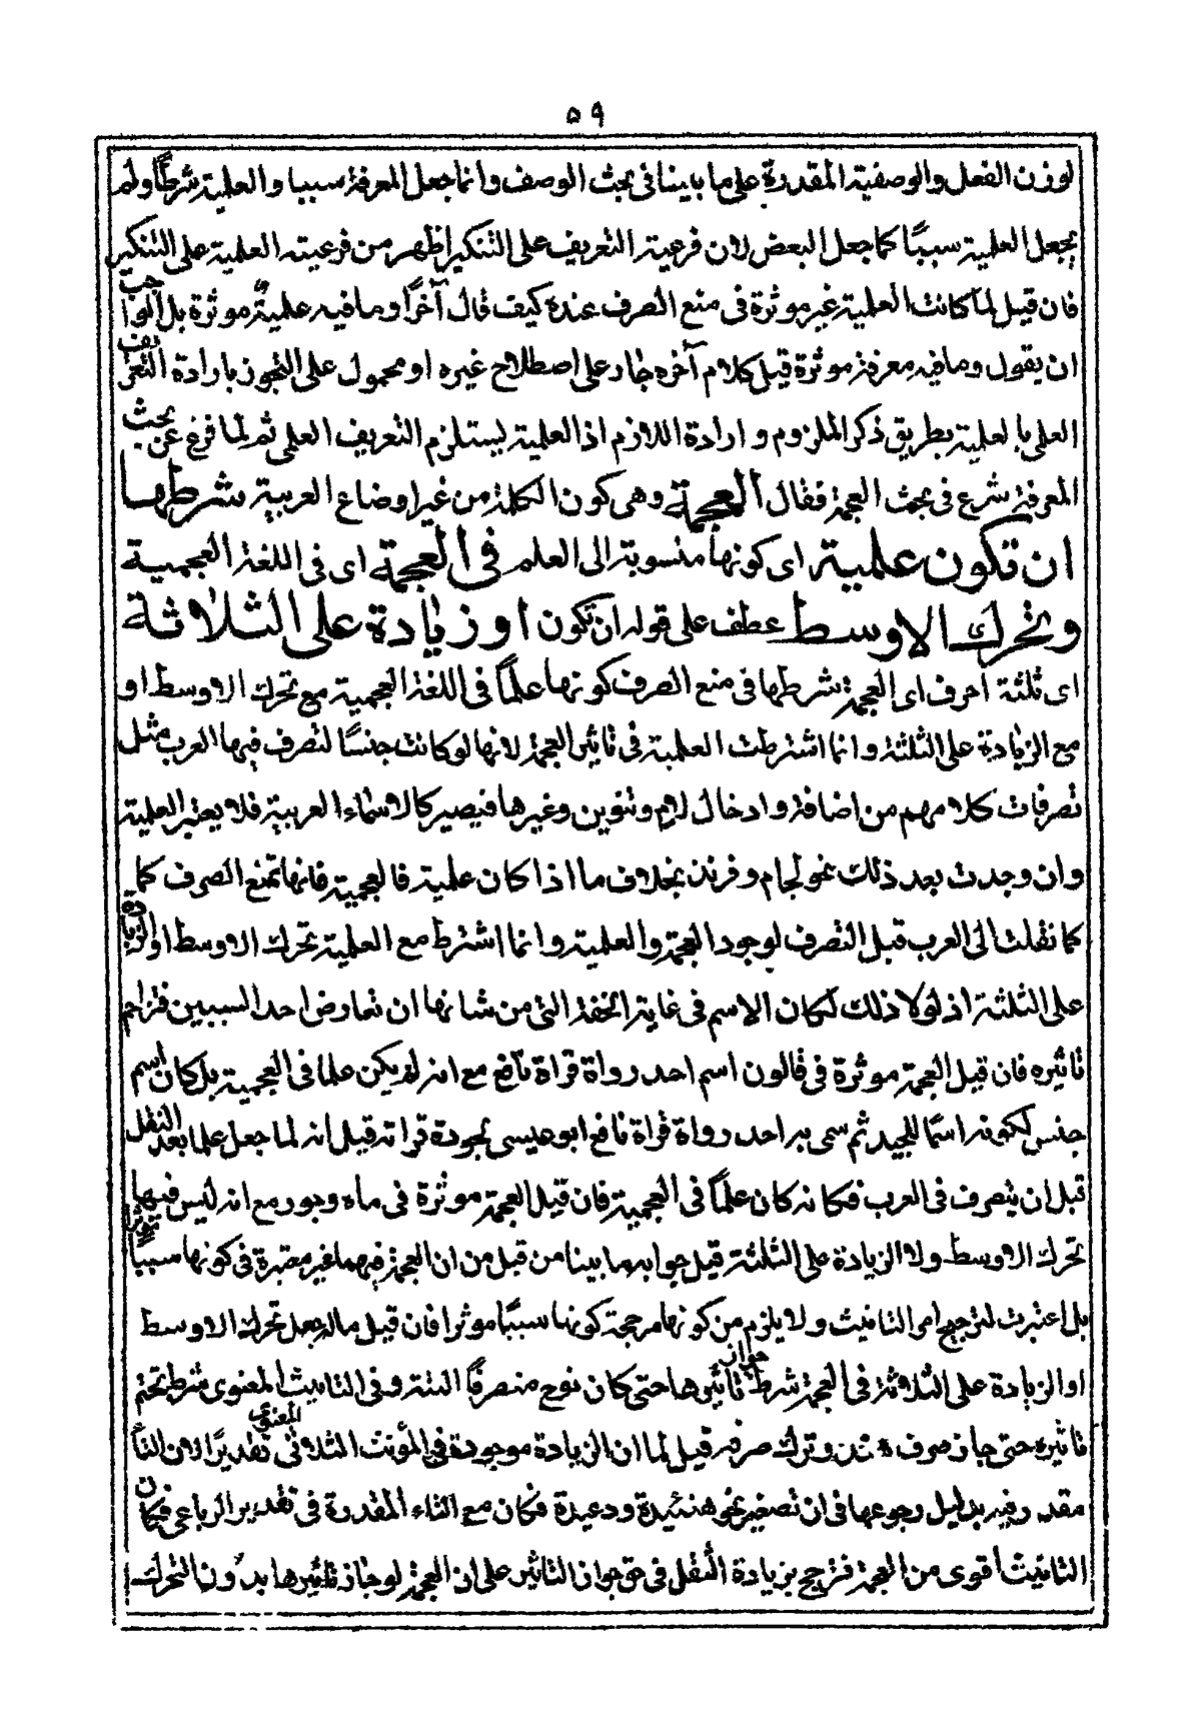 ٥٩
لوزن الفعل والوصفية المقدرة على ما بينا فى بحث الوصف وانما جعل المعرفة سببا والعلمية شرطًا ولم
يجعل العلمية سببًا كما جعل البعض لان فرعية التعريف على التنكير اظهر من فرعيته العلمية على التنكير
فان قيل لما كانت العلمية غير موثرة فى منع الصرف عنده كيف قال آخرًا وما فيه علمية موثرة بل الواجب
ان يقول وما فيه معرفة موثرة قيل كلام آخره جار على اصطلاح غيره او محمول على التجوز بارادة التعريف
العلمى بالعلمية بطريق ذكر الملزوم وارادة اللازم اذ العلمية يستلزم التعريف العلمى ثم لما فرغ عن بحث
المعرفة شرع فى بحث العجمة فقال العجمة وهى كون الكلمة من غير اوضاع العربية شرطها
ان تكون علمية اى كونها منسوبة الى العلم فى العجمة اى فى اللغة العجمية
وتحرك الاوسط عطف على قوله ان تكون او زيادة على الثلاثة
اى ثلثة احرف اى العجمة شرطها فى منع الصرف كونها علمًا فى اللغة العجمية مع تحرك الاوسط او
مع الزيادة على الثلثة وانما اشترطت العلمية فى تاثير العجمة لانها لو كانت جنسًا لتصرف فيها العرب مثل
تصرفات كلامهم من اضافة وادخال لام وتنوين وغيرها فيصير كالاسماء العربية فلا يعتبر العلمية
وان وجدت بعد ذلك نحو لجام وفرند بخلاف ما اذا كان علمية فالعجمية فانها تمنع الصرف كما
كما نقلت الى العرب قبل التصرف لوجود العجمة والعلمية وانما اشترط مع العلمية تحرك الاوسط او الزيادة
على الثلثة اذ لولا ذلك لكان الاسم فى غاية الخفة التى من شانها ان تعارض احد السببين فتزاحم
تاثيره فان قيل العجمة موثرة فى قالون اسم احد رواة قراة نافع مع انه لم يكن علما فى العجمية بل كان اسم
جنس لكونه اسمًا للجيد ثم سمى به احد رواة قراة نافع ابو عيسى بجودة قراته قيل انه لما جعل علما بعد النقل
قبل ان يتصرف فى العرب فكانه كان علمًا فى العجمية فان قيل العجمة موثرة فى ماه وجور مع انه ليس فيها
تحرك الاوسط ولا الزيادة على الثلثة قيل جوابه ما بينا من قبل من ان العجمة فيهما غير معتبرة فى كونها سببًا موثرا
بل اعتبرت لترجيح امر التانيث ولا يلزم من كونها مرجحة كونها سببًا موثرا فان قيل ما له يجعل تحرك الاوسط
او الزيادة على الثلاثة فى العجمة شرط جواز تاثيرها حتى كان نوح منصرفًا البتة وفى التانيث المعنوى شرط تحتم
تاثيره حتى جاز صرف هند وترك صرفه قيل لما ان الزيادة موجودة فى المؤنث الثلاثى المعنوى تقديرًا لان التاء
مقدر فيه بدليل رجوعها فى ان تصغير نحو هنيدة ودعيدة فكان مع التاء المقدرة فى تقدير الرباعى فكان
التانيث أقوى من العجمة فترجح بزيادة الثقل فى حق جواز التاثير على ان العجمة لو جاز تاثيرها بدون التحرك